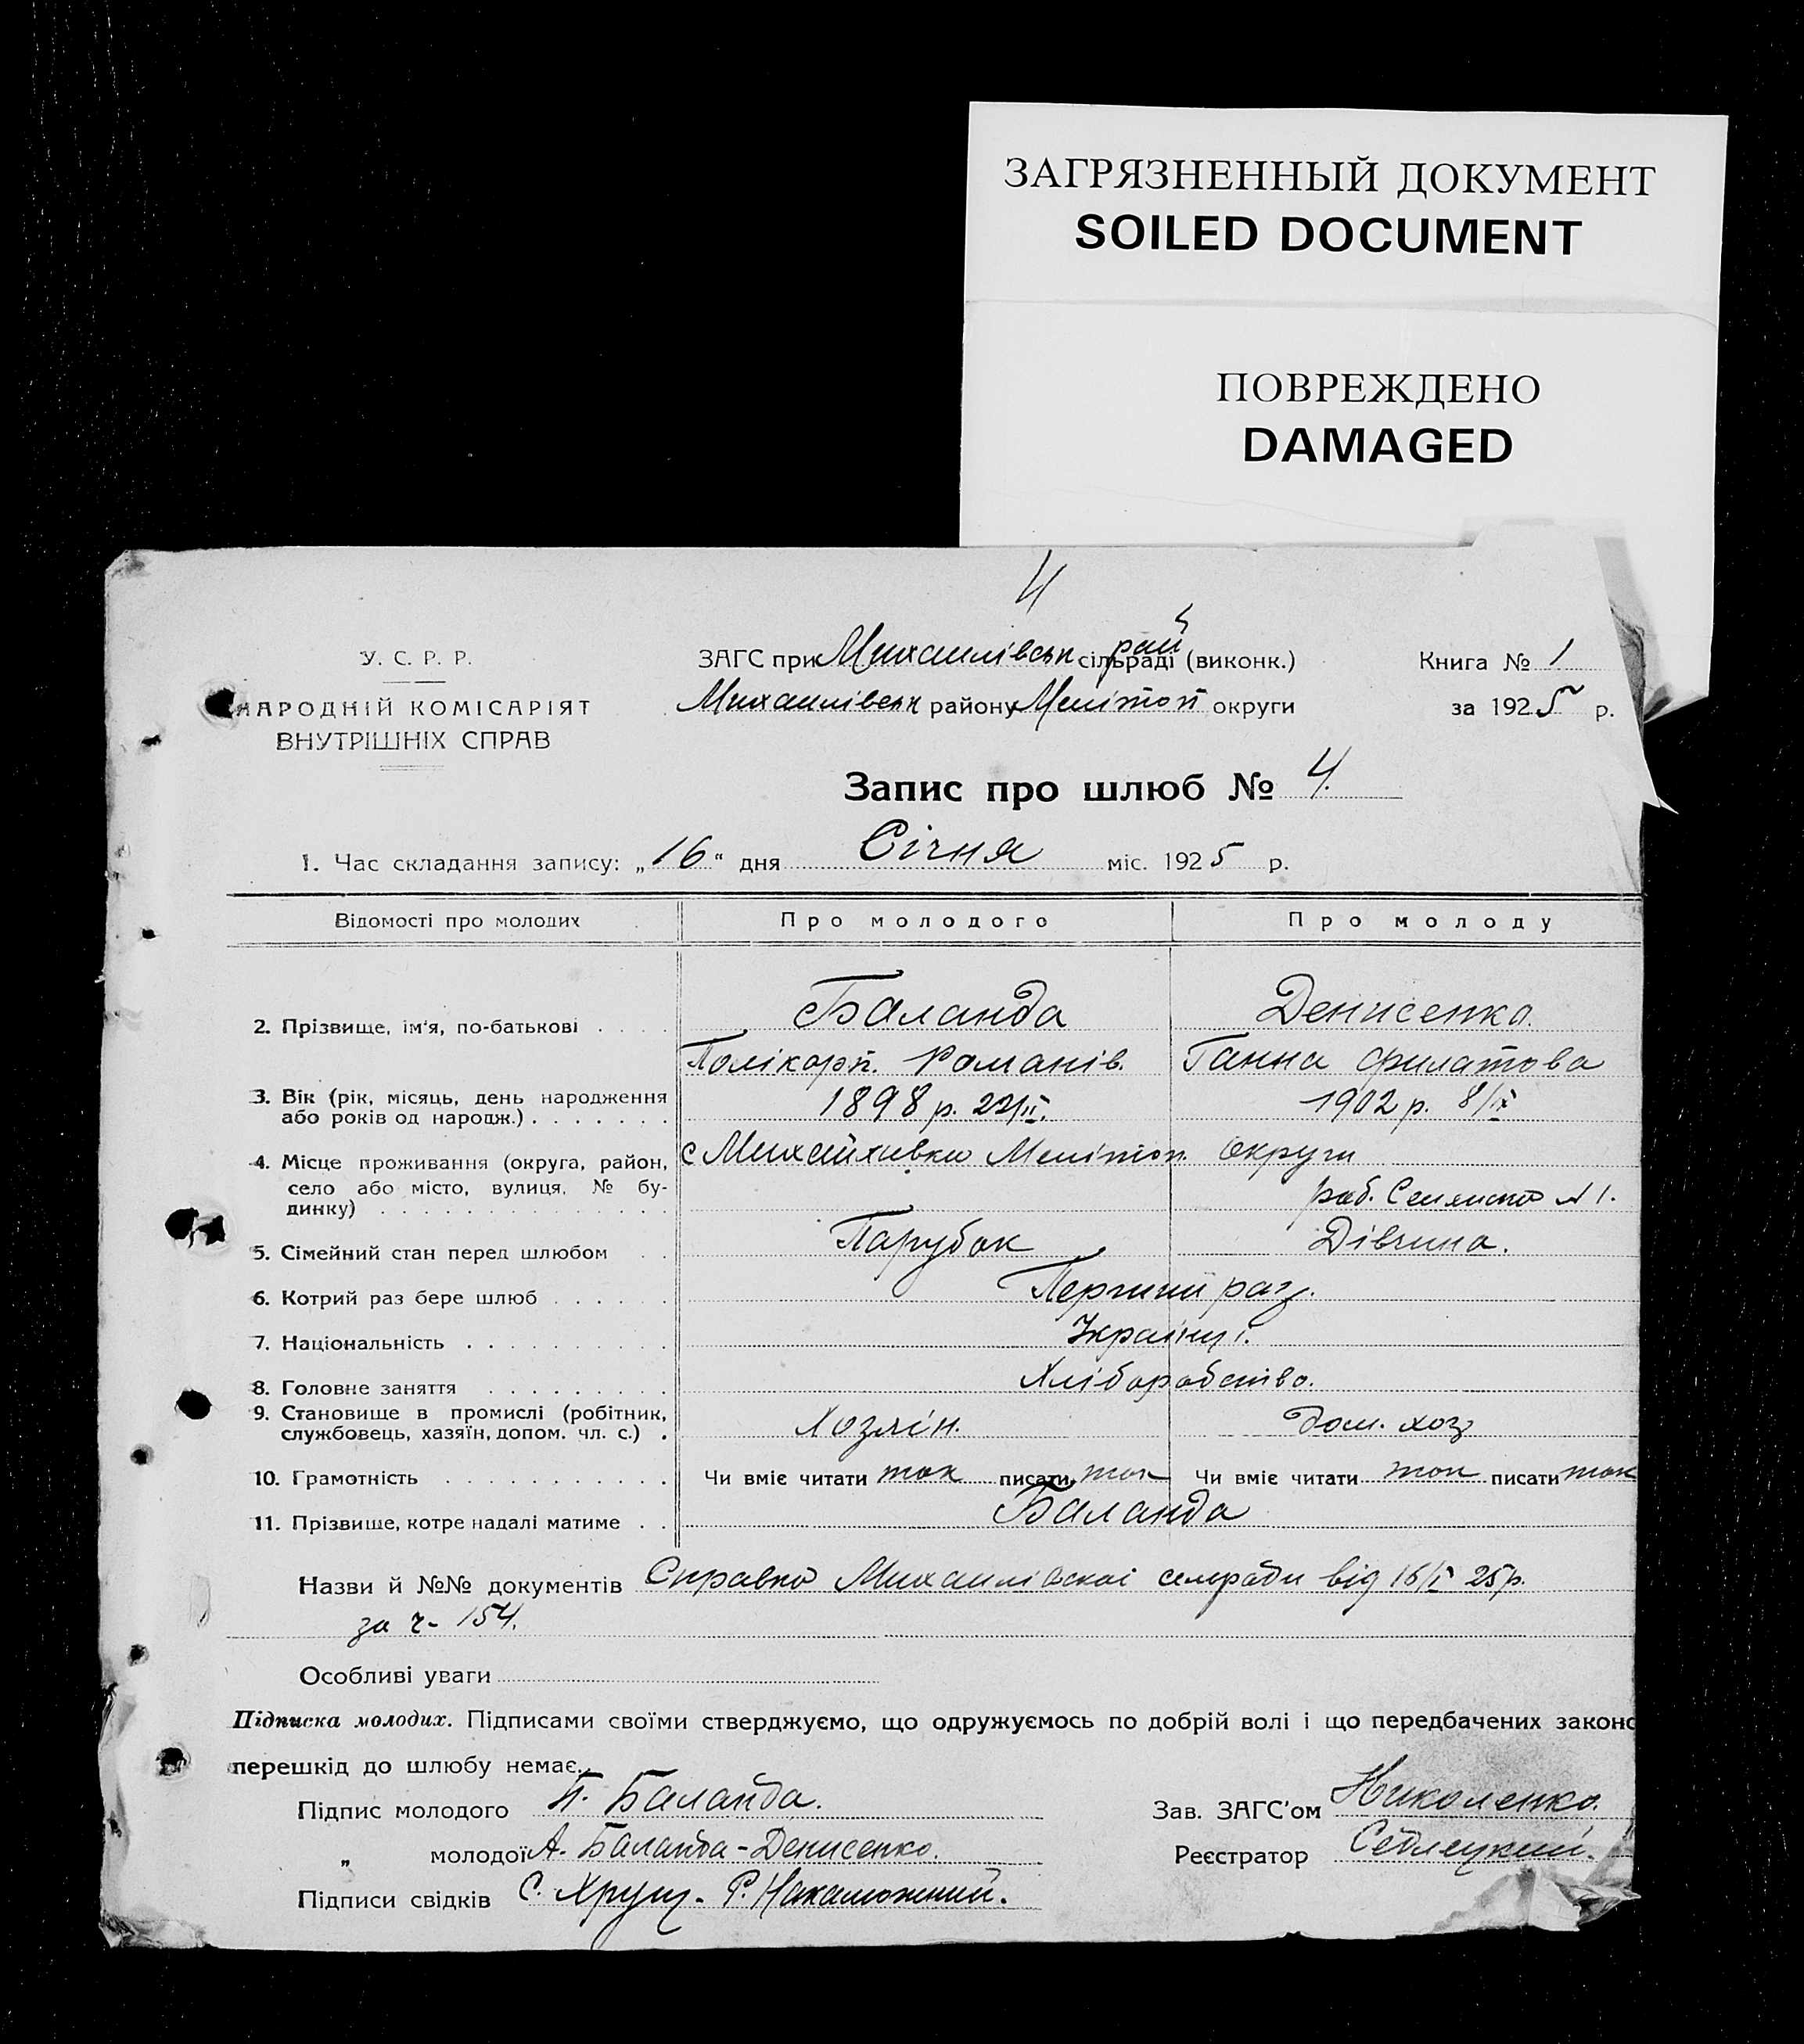 ЗАГРЯЗНЕННЫЙ ДОКУМЕНТ
SOILED DOCUMENT
ПОВРЕЖДЕНО
DAMAGED
4
У. С. Р. Р.
НАРОДНІЙ КОМІСАРІЯТ
ВНУТРІШНІХ СПРАВ
ЗАГС при Михаилівськ сільраді рай (виконк.)
Михаилівськ району Мелітоп округи
Книга № 1
за 1925 р.
Запис про шлюб № 4.
1. Час складання запису: „16“ дня Січня міс. 1925 р.
Відомості про молодих Про молодого Про молоду
2. Прізвище, ім'я, по-батькові . . . . Баланда Денисенко.
Полікарп. Романів. Ганна Филатова
3. Вік (рік, місяць, день народження або років од народж.) . . . . . . . 1898 р. 22/II. 1902 р. 8/IX
4. Місце проживання (округа, район, село або місто, вулиця, № будинку) . . . с Михайлівки Мелітоп. округи
№ 1.
5. Сімейний стан перед шлюбом . . Парубок Дівчина.
6. Котрий раз бере шлюб . . . . . Перший раз.
7. Національність . . . . . . . . . Українці.
8. Головне заняття . . . . . . . . . Хліборобство.
9. Становище в промислі (робітник, службовець, хазяїн, допом. чл. с.) . Хозяїн. Дом. хоз
10. Грамотність . . . . . . . . . . Чи вміє читати так писати так Чи вміє читати так писати так
11. Прізвище, котре надалі матиме . . Баланда
Назви й №№ документів Справка Михаилівскоі сельради від 16/I 25р.
за ч- 154.
Особливі уваги
Підписка молодих. Підписами своїми стверджуємо, що одружуємось по добрій волі і що передбачених законо
перешкід до шлюбу немає.
Підпис молодого П. Баланда.
Зав. ЗАГС'ом Николенко.
„ молодої А. Баланда-Денисенко.
Реєстратор Седлецкий.
Підписи свідків С. Хрущ. Р.